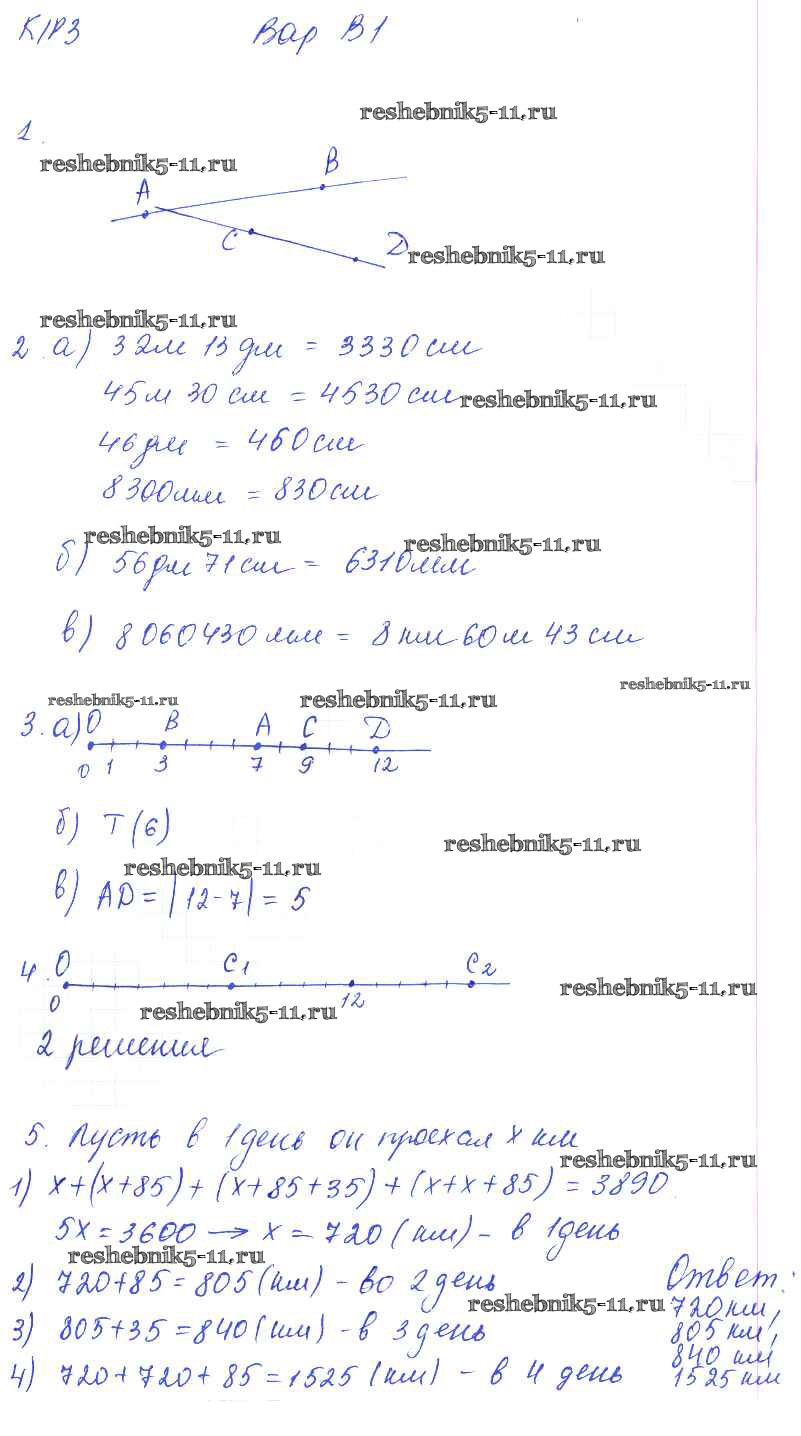 К/Р3 Вар В1
reshebnik5-11.ru
1.
reshebnik5-11.ru
A B
C D
reshebnik5-11.ru
reshebnik5-11.ru
2. а) 32м 13 дм = 3330 см
45м 30 см = 4530 см
reshebnik5-11.ru
46 дм = 460 см
8300мм = 830 см
reshebnik5-11.ru reshebnik5-11.ru
б) 56 дм 71 см = 6310мм
в) 8060430 мм = 8 км 60 м 43 см
reshebnik5-11.ru reshebnik5-11.ru reshebnik5-11.ru
3. а) O B A C D
0 1 3 7 9 12
б) T(6)
reshebnik5-11.ru
reshebnik5-11.ru
в) AD = |12-7| = 5
4. O C1 C2
0 12
reshebnik5-11.ru
reshebnik5-11.ru
2 решения
5. Пусть в 1 день он проехал x км
reshebnik5-11.ru
1) x+(x+85)+(x+85+35)+(x+x+85) = 3890
5x = 3600 → x = 720 (км) - в 1 день
reshebnik5-11.ru
2) 720+85 = 805 (км) - во 2 день
reshebnik5-11.ru
3) 805+35 = 840 (км) - в 3 день
4) 720+720+85 = 1525 (км) - в 4 день
Ответ:
720 км,
805 км,
840 км
1525 км